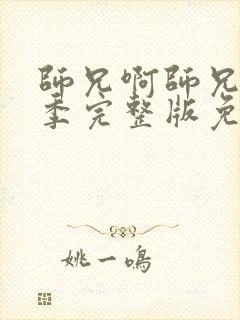 師兄啊師兄
季完整版免
姚一鳴